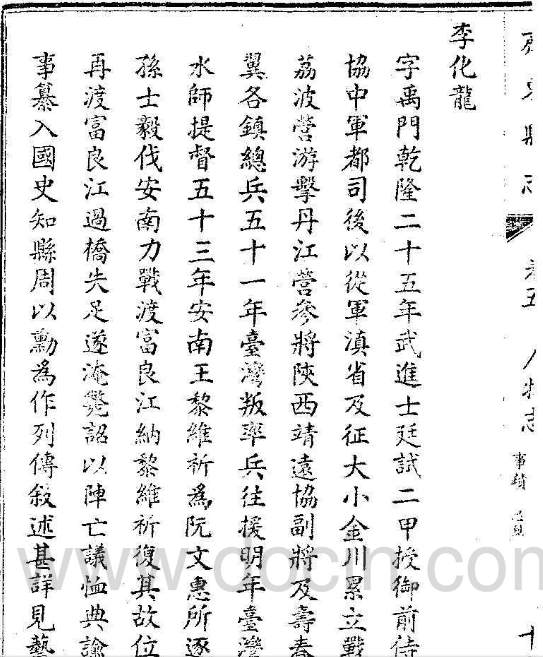 齊東縣志
卷五 人物志 事績
李化龍
字禹門乾隆二十五年武進士廷試二甲授御前侍
協中軍都司後以從軍滇省及征大小金川累立戰
荔波營游擊丹江營參將陝西靖遠協副將及壽春
翼各鎮總兵五十一年臺灣叛率兵往援明年臺灣
水師提督五十三年安南王黎維祈為阮文惠所逐
孫士毅伐安南力戰渡富良江納黎維祈復其故位
再渡富良江過橋失足遂淹斃詔以陣亡議恤典諭
事纂入國史知縣周以勳為作列傳敘述甚詳見藝